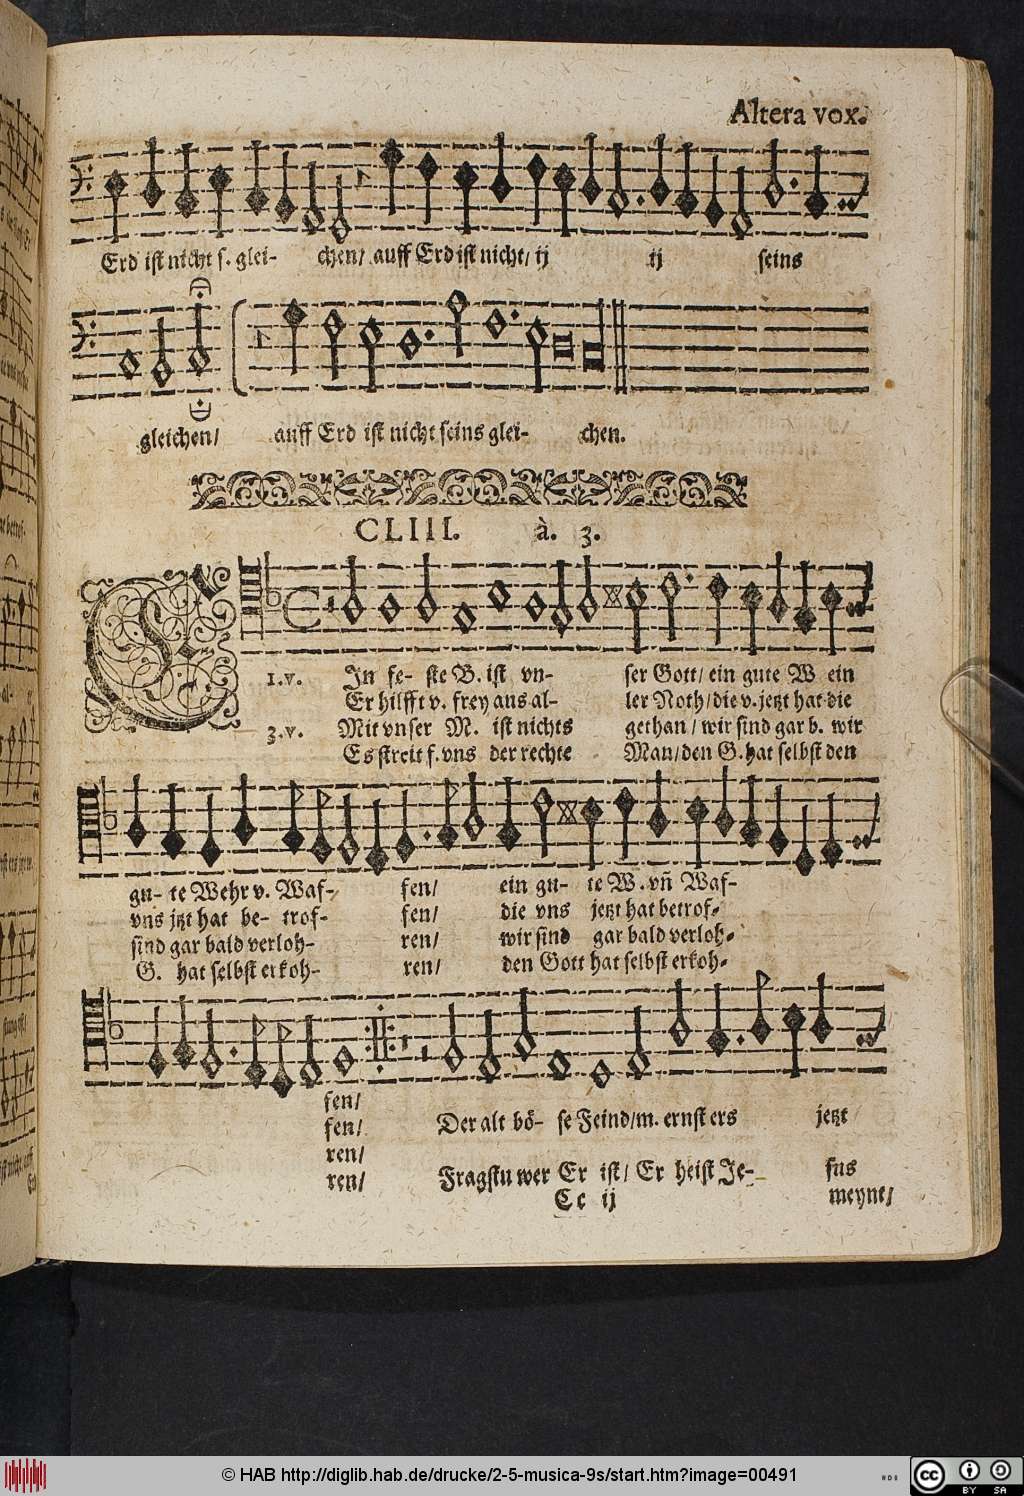 Altera vox.
Erd ist nicht s. glei- chen/ auff Erd ist nicht/ ij ij seins
gleichen/ auff Erd ist nicht seins glei- chen.
CLIII. à. 3.
E
1.v. In fe- ste B. ist vn- ser Gott/ ein gute W ein
Er hilfft v. frey aus al- ler Noth/ die v. jetzt hat die
3.v. Mit vnser M. ist nichts gethan/ wir sind gar b. wir
Es streit f. vns der rechte Man/ den G. hat selbst den
gu- te Wehr v. Waf- fen/ ein gu- te W. vñ Waf-
vns jtzt hat be- trof- fen/ die vns jetzt hat betrof-
sind gar bald verloh- ren/ wir sind gar bald verloh-
G. hat selbst erkoh- ren/ den Gott hat selbst erkoh-
fen/
fen/ Der alt bö- se Feind/ m. ernst ers jetzt
ren/
ren/ Fragstu wer Er ist/ Er heist Je- sus
Cc ij meynt/
© HAB http://diglib.hab.de/drucke/2-5-musica-9s/start.htm?image=00491
cc BY SA